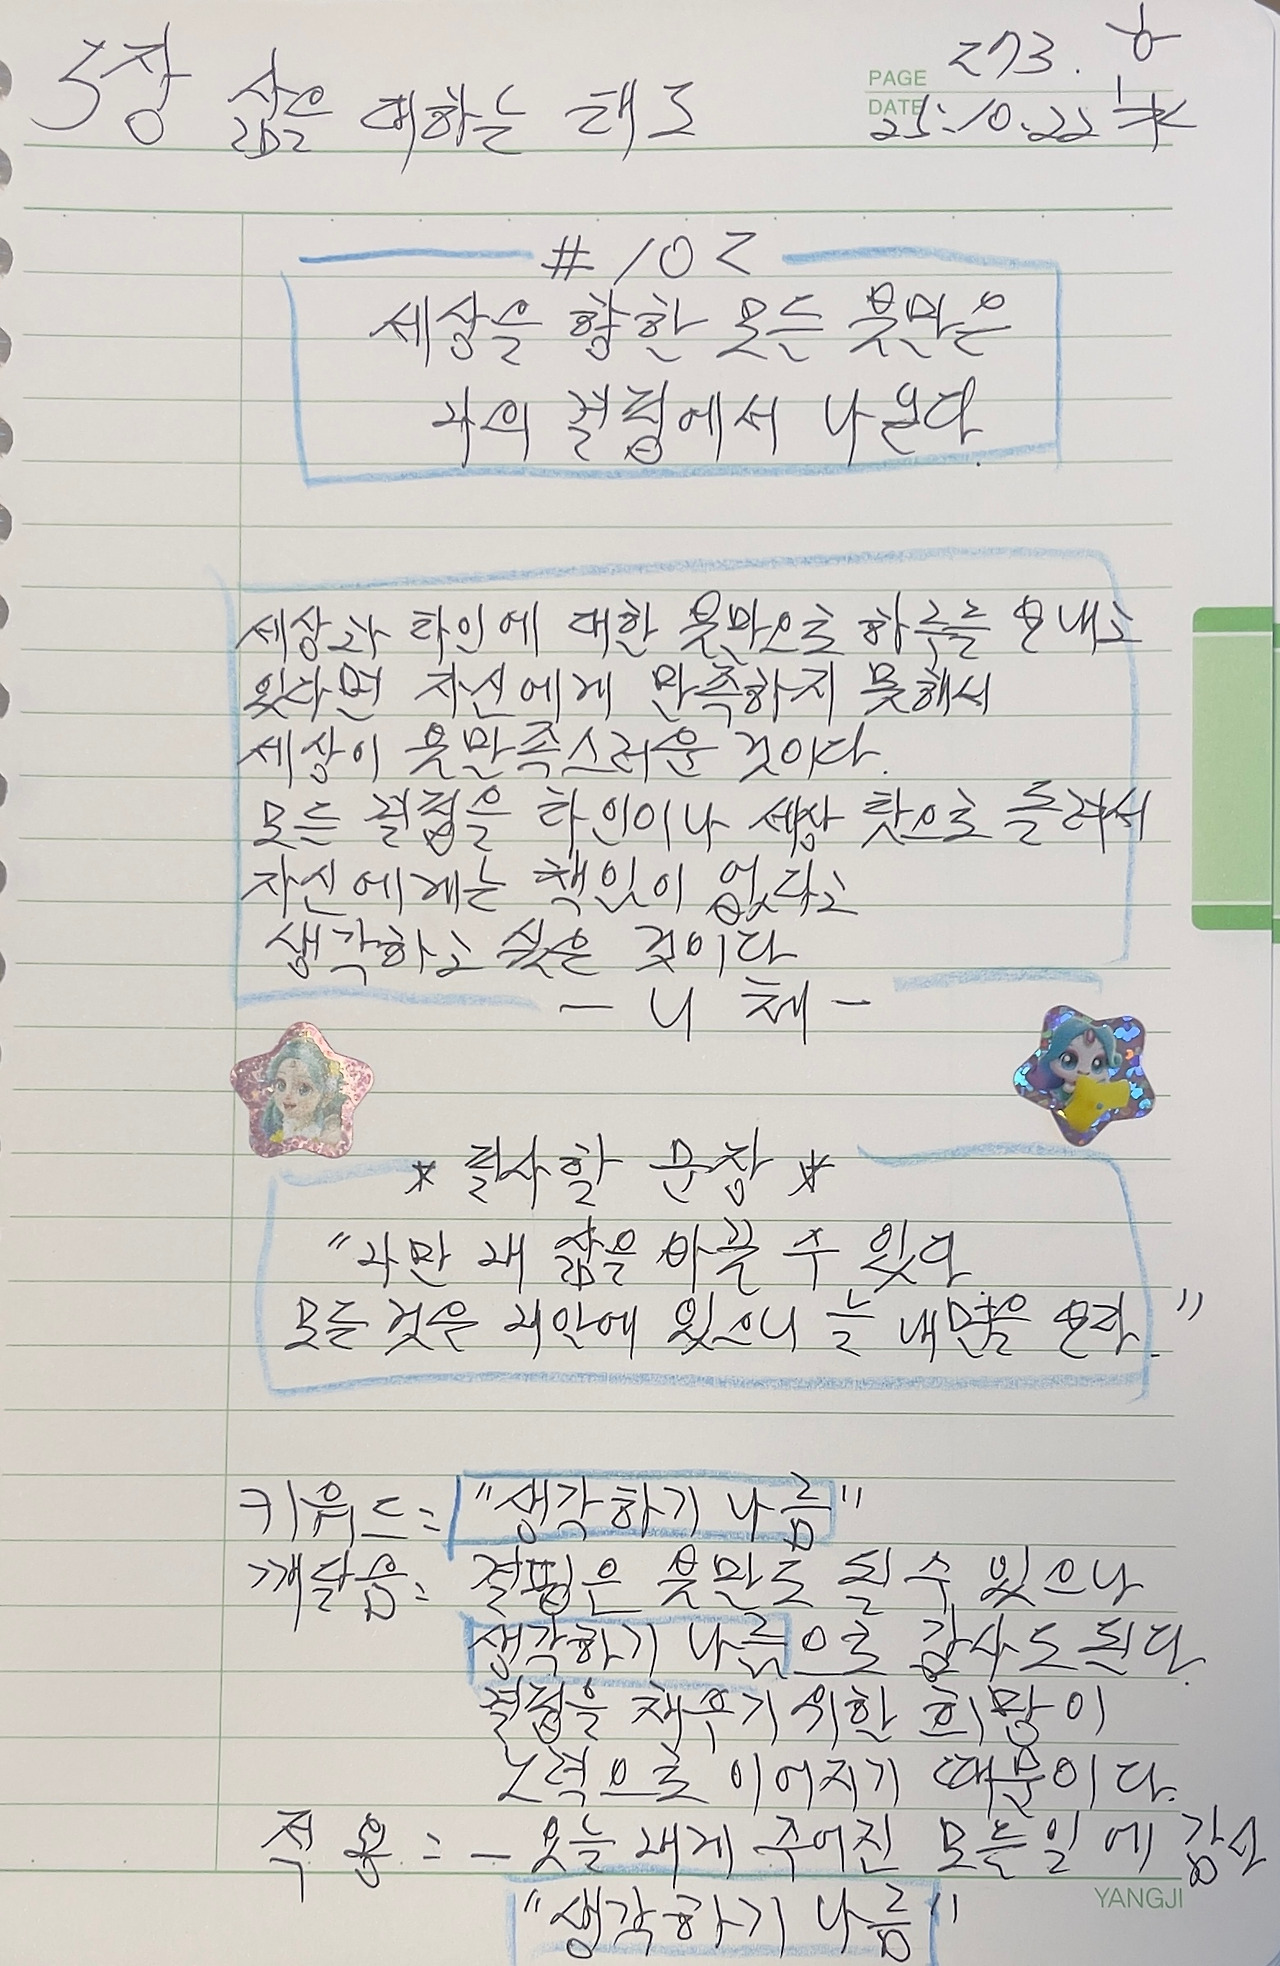 PAGE 273.
DATE 25.10.22 水
3장 삶을 대하는 태도
#102
세상을 향한 모든 불만은
나의 결핍에서 나온다.
세상과 타인에 대한 불만으로 하루를 보내고
있다면 자신에게 만족하지 못해서
세상이 불만족스러운 것이다.
모든 결점을 타인이나 세상 탓으로 돌려서
자신에게는 책임이 없다고
생각하고 싶은 것이다
- 니 체 -
* 필사할 문장 *
"나만 내 삶을 바꿀 수 있다
모든 것은 내안에 있으니 늘 내면을 보라."
키워드= "생각하기 나름"
깨달음= 결핍은 불만도 될 수 있으나
생각하기 나름으로 감사도 된다.
결점을 채우기 위한 희망이
노력으로 이어지기 때문이다.
적 용 = - 오늘 내게 주어진 모든일에 감사
YANGJI
"생각하기 나름"